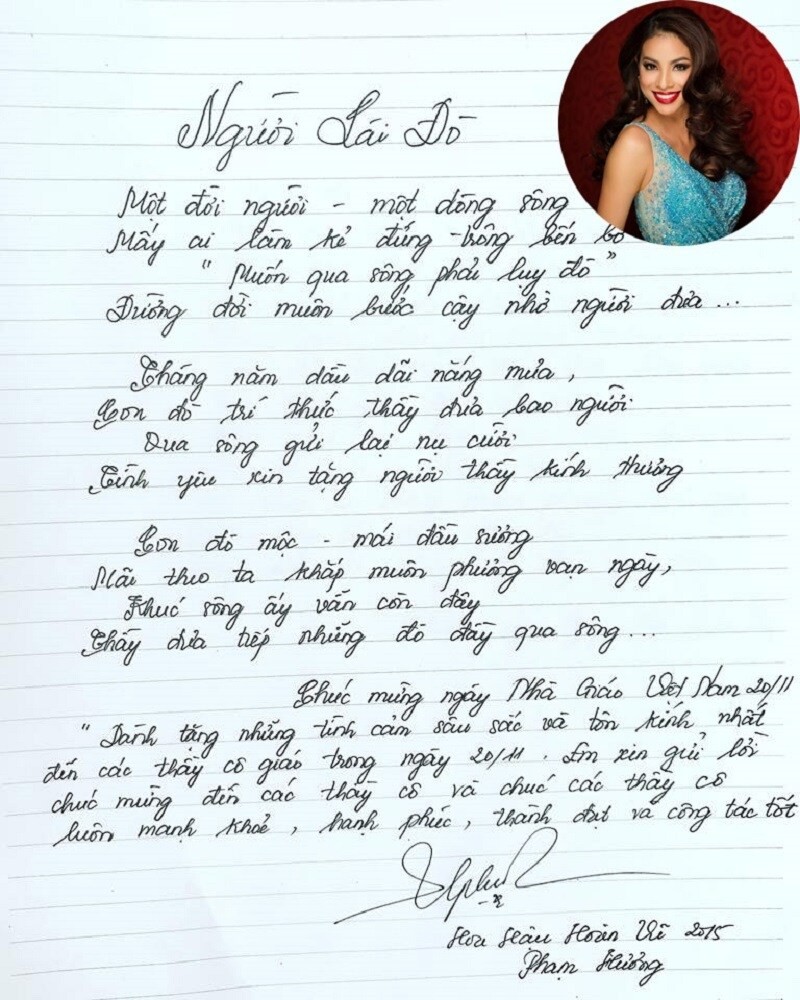 Người Lái Đò
Một đời người - một dòng sông
Mấy ai làm kẻ đứng trông bến bờ
"Muốn qua sông phải luỵ đò"
Đường đời muôn bước cậy nhờ người đưa...
Tháng năm dầu dãi nắng mưa,
Con đò trí thức thầy đưa bao người
Qua sông gửi lại nụ cười
Tình yêu xin tặng người thầy kính thương
Con đò mộc - mái đầu sương
Mãi theo ta khắp muôn phương vạn ngày,
Khúc sông ấy vẫn còn đây
Thầy đưa tiếp những đò đầy qua sông...
Chúc mừng ngày Nhà Giáo Việt Nam 20/11
"Dành tặng những tình cảm sâu sắc và tôn kính nhất
đến các thầy cô giáo trong ngày 20/11. Em xin gửi lời
chúc mừng đến các thầy cô và chúc các thầy cô
luôn mạnh khoẻ, hạnh phúc, thành đạt và công tác tốt
Hoa Hậu Hoàn Vũ 2015
Phạm Hương